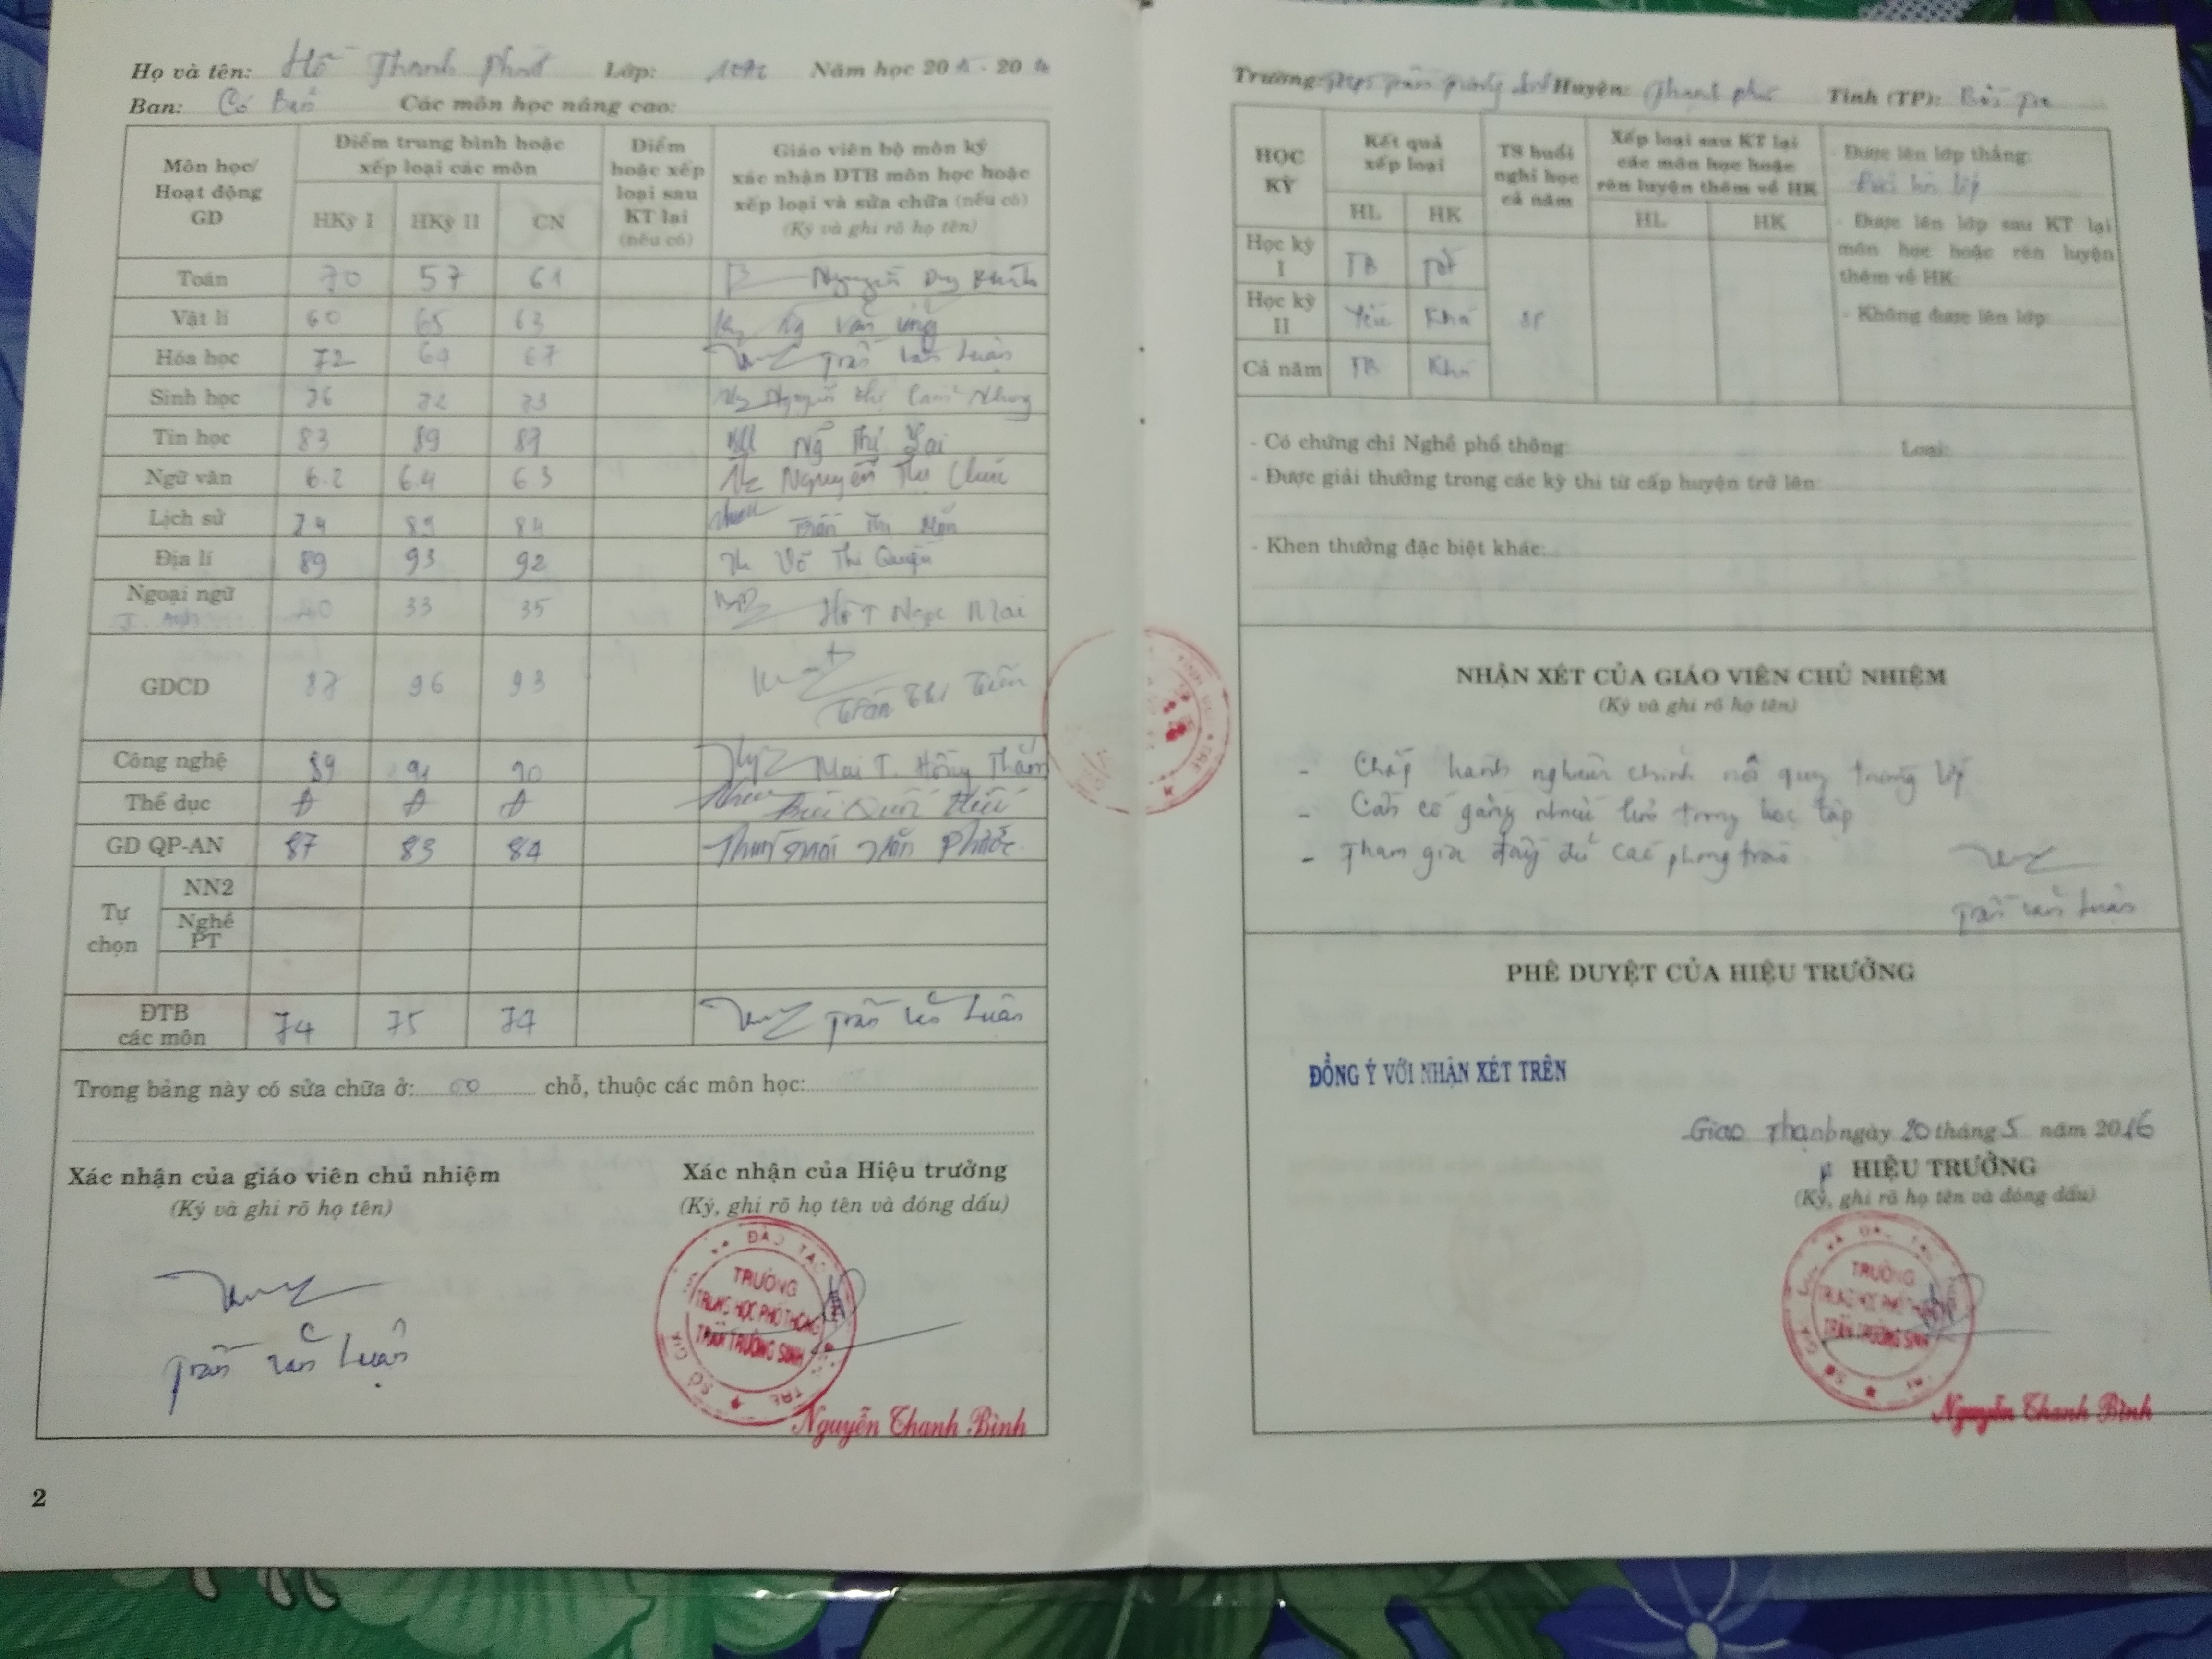 Họ và tên: Hồ Thanh Phát Lớp: 10A2 Năm học 20 - 20
Ban: Cơ Bản Các môn học nâng cao:
Môn học/ Hoạt động GD
Điểm trung bình hoặc xếp loại các môn
HKỳ I HKỳ II CN
Điểm hoặc xếp loại sau KT lại (nếu có)
Giáo viên bộ môn ký xác nhận ĐTB môn học hoặc xếp loại và sửa chữa (nếu có) (Ký và ghi rõ họ tên)
Toán 70 57 61 Nguyễn Duy
Vật lí 60 65 63 Ng Văn
Hóa học 72 67 Trần Văn Luận
Sinh học 76 72 73 Nguyễn Thị Cẩm Nhung
Tin học 83 89 87 Thị
Ngữ văn 6.2 6.4 6.3 Nguyễn Thị Chúc
Lịch sử 74 89 84 Trần Thị
Địa lí 89 93 92 Võ Thị Quyên
Ngoại ngữ 40 33 35 Hồ T Ngọc Mai
T. Anh
GDCD 87 96 93 Trần Thị Tiền
Công nghệ 89 91 90 Mai T. Hồng Thắm
Thể dục Đ Đ Đ Bùi Quốc
GD QP-AN 87 83 84 Văn Phước
Tự chọn
NN2
Nghề PT
ĐTB các môn 74 75 74 Trần Văn Luận
Trong bảng này có sửa chữa ở: 00 chỗ, thuộc các môn học:
Xác nhận của giáo viên chủ nhiệm
(Ký và ghi rõ họ tên)
Trần Văn Luận
Xác nhận của Hiệu trưởng
(Ký, ghi rõ họ tên và đóng dấu)
TRƯỜNG
TRUNG HỌC PHỔ THÔNG
TRẦN TRƯỜNG SINH
Nguyễn Thanh Bình
2
Trường: THPT Trần Trường Sinh Huyện: Thạnh Phú Tỉnh (TP): Bến Tre
HỌC KỲ
Kết quả xếp loại
HL HK
TS buổi nghỉ học cả năm
Xếp loại sau KT lại các môn học hoặc rèn luyện thêm về HK
HL HK
- Được lên lớp thẳng:
Được lên lớp
- Được lên lớp sau KT lại môn học hoặc rèn luyện thêm về HK:
- Không được lên lớp:
Học kỳ I TB Tốt
Học kỳ II Yếu Khá
Cả năm TB Khá
- Có chứng chỉ Nghề phổ thông: Loại:
- Được giải thưởng trong các kỳ thi từ cấp huyện trở lên:
- Khen thưởng đặc biệt khác:
NHẬN XÉT CỦA GIÁO VIÊN CHỦ NHIỆM
(Ký và ghi rõ họ tên)
- Chấp hành nghiêm chỉnh nội quy trường lớp
- Cần cố gắng nhiều hơn trong học tập
- Tham gia đầy đủ các phong trào
Trần Văn Luận
PHÊ DUYỆT CỦA HIỆU TRƯỞNG
ĐỒNG Ý VỚI NHẬN XÉT TRÊN
Giao Thạnh ngày 20 tháng 5 năm 2016
HIỆU TRƯỞNG
(Ký, ghi rõ họ tên và đóng dấu)
TRƯỜNG
TRUNG HỌC PHỔ THÔNG
TRẦN TRƯỜNG SINH
Nguyễn Thanh Bình